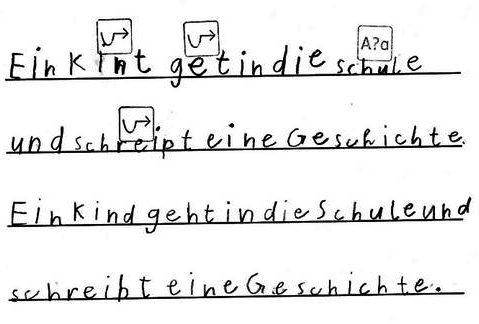 Ein Kint get in die schule
und schreipt eine Geschichte.
Ein Kind geht in die Schule und
schreibt eine Geschichte.